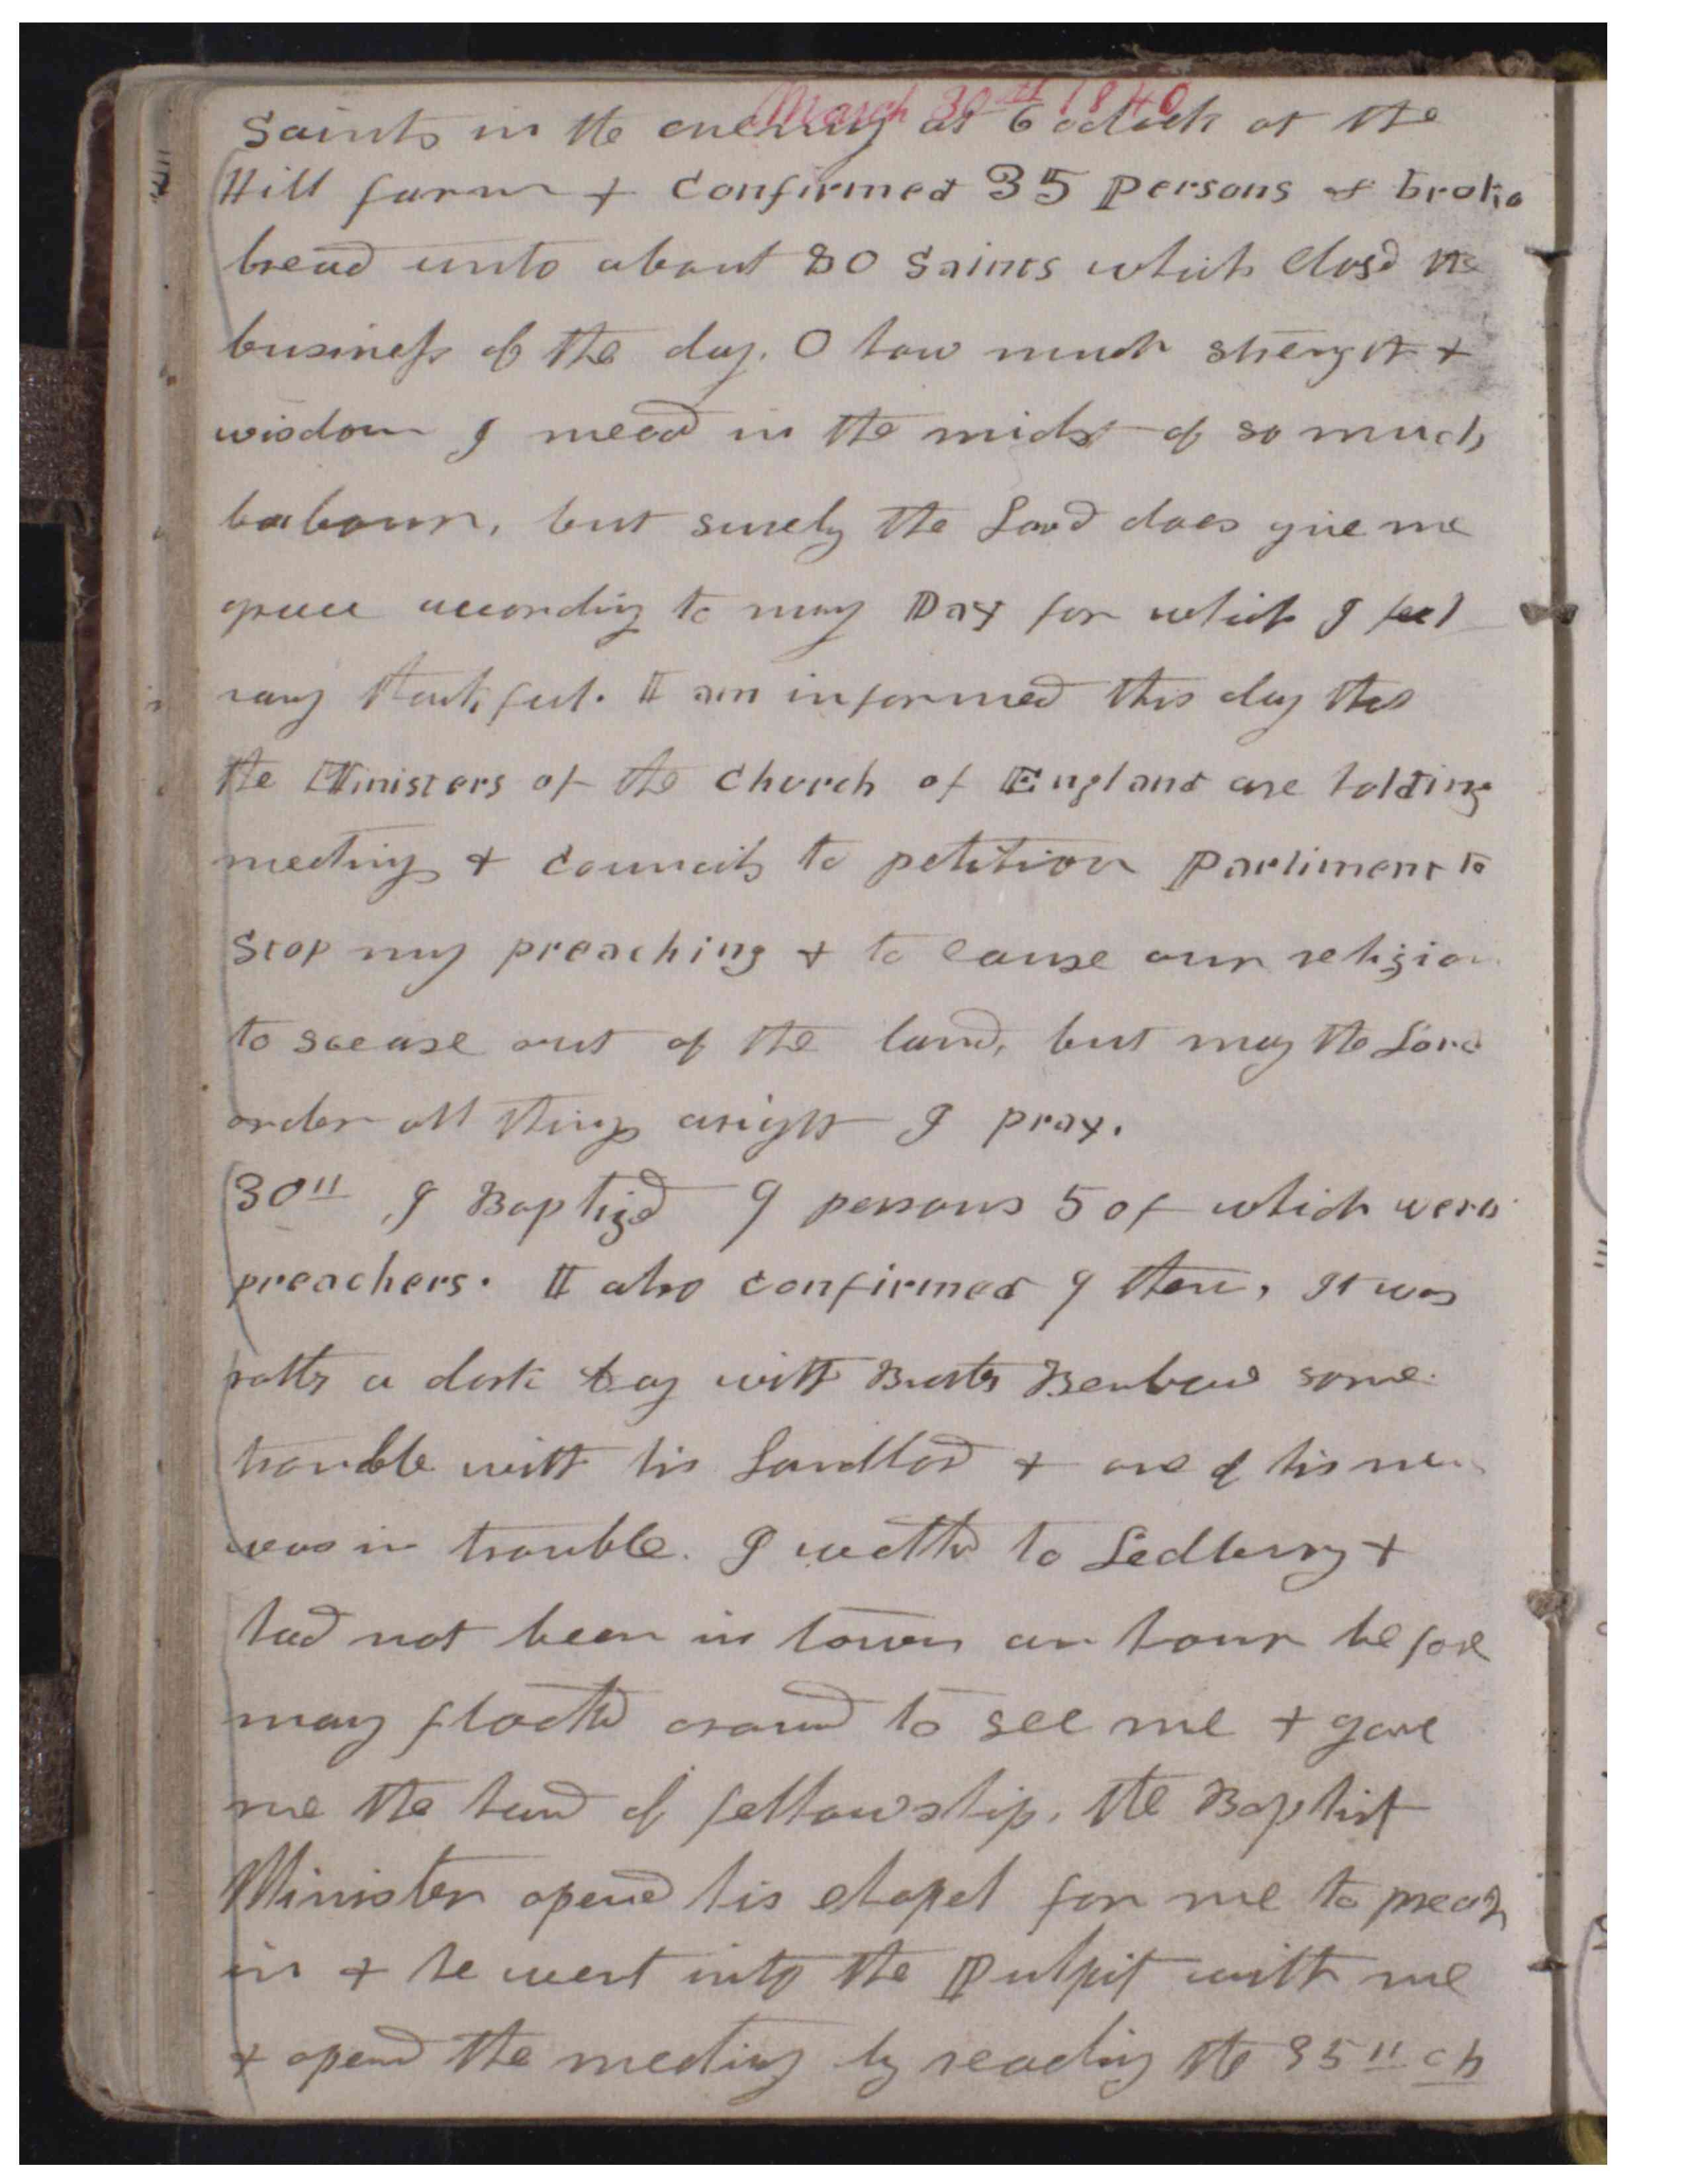 March 30th 1840
Saints in the evening at 6 oclock at the
Hill farm & Confirmed 35 Persons & broke
bread unto about 80 Saints which closd the
business of the day. O how much strength &
wisdom I need in the midst of so much
labour, but surely the Lord does give me
grace according to my Day for which I feel
vary thankful. I am informed this day that
the Ministers of the Church of England are holding
meetings & Councils to petition Parliment to
Stop my preaching & to cause our religion
to scease out of the land, but may the Lord
order all things aright I pray.
30th I Baptized 9 persons 5 of which were
preachers. I also confirmed 9 there, It was
rather a dark day with Brother Benbow some
trouble with his Landlord & one of his men
was in trouble. I walked to Ledbury &
had not been in town an hour before
many flocked around to see me & gave
me the hand of fellowship. the Baptist
Minister opened his chapel for me to preach
in & he went into the Pulpit with me
& opend the meeting by reading the 35th ch